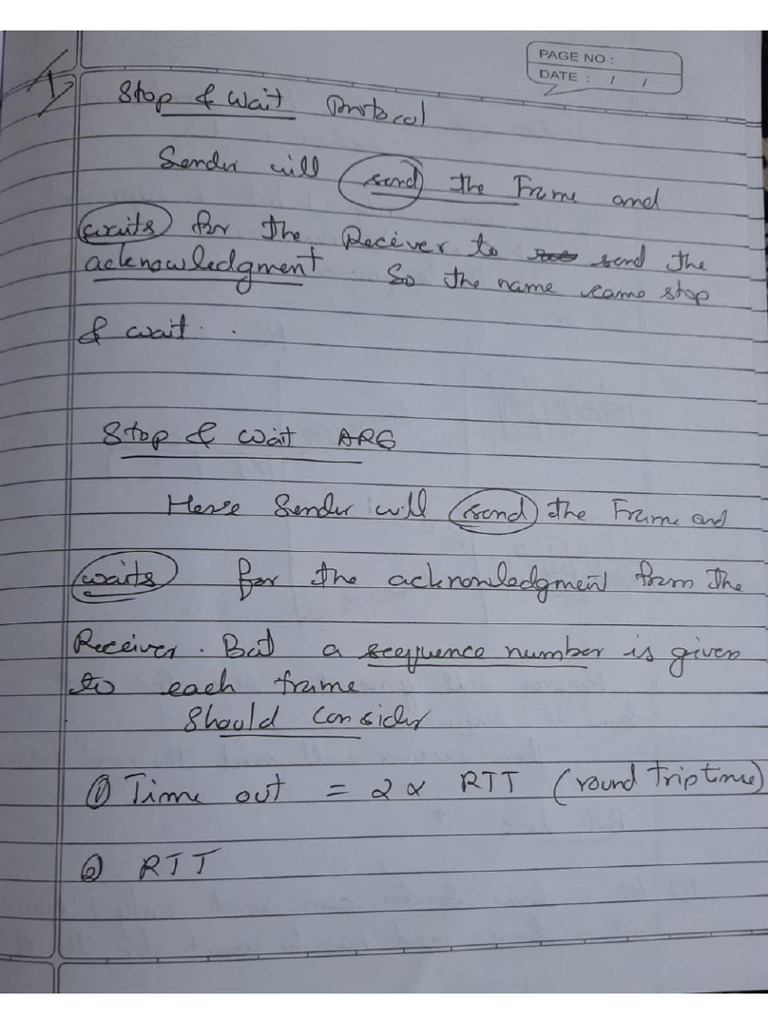 PAGE NO :
DATE : / /
1)
Stop & Wait Protocol
Sender will send the Frame and
waits for the Reciver to send the
acknowledgment. So the name came stop
& wait..
Stop & Wait ARQ
Here Sender will send the Frame and
waits for the acknowledgment from the
Receiver. But a sequence number is given
to each frame
Should Consider
① Time out = 2 x RTT (round trip time)
② RTT